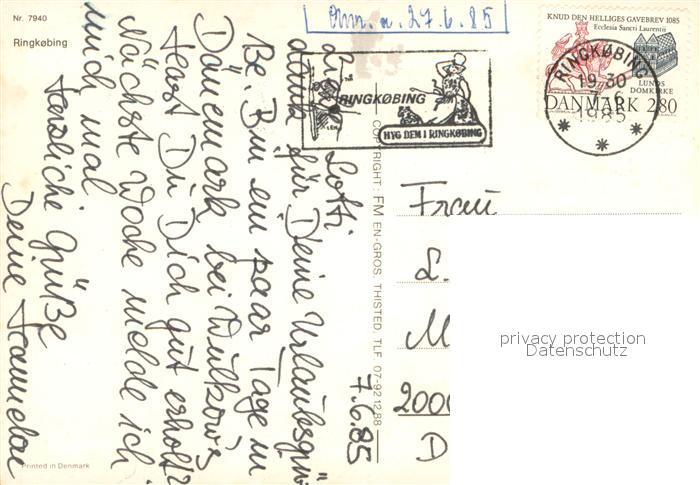 Nr. 7940
Ringkøbing
Ann. a. 27.6.85
KNUD DEN HELLIGES GAVEBREV 1085
Ecclesia Sancti Laurentii
LUNDS
DOMKIRKE
DANMARK 2.80
RINGKØBING
19.30
7.6.
1985
RINGKØBING
HYG DEM I RINGKØBING
7.6.85
Lotti
dank für Deine Urlaubsgrü
ße. Bin ein paar Tage in
Dänemark bei Wulkow's
Hast Du Dich gut erholt?
Nächste Woche melde ich
mich mal
Herzliche Grüße
Deine Hannelore
COPYRIGHT: FM EN-GROS, THISTED, TLF 07-921288
Frau
L.
M
2000
D
privacy protection
Datenschutz
Printed in Denmark